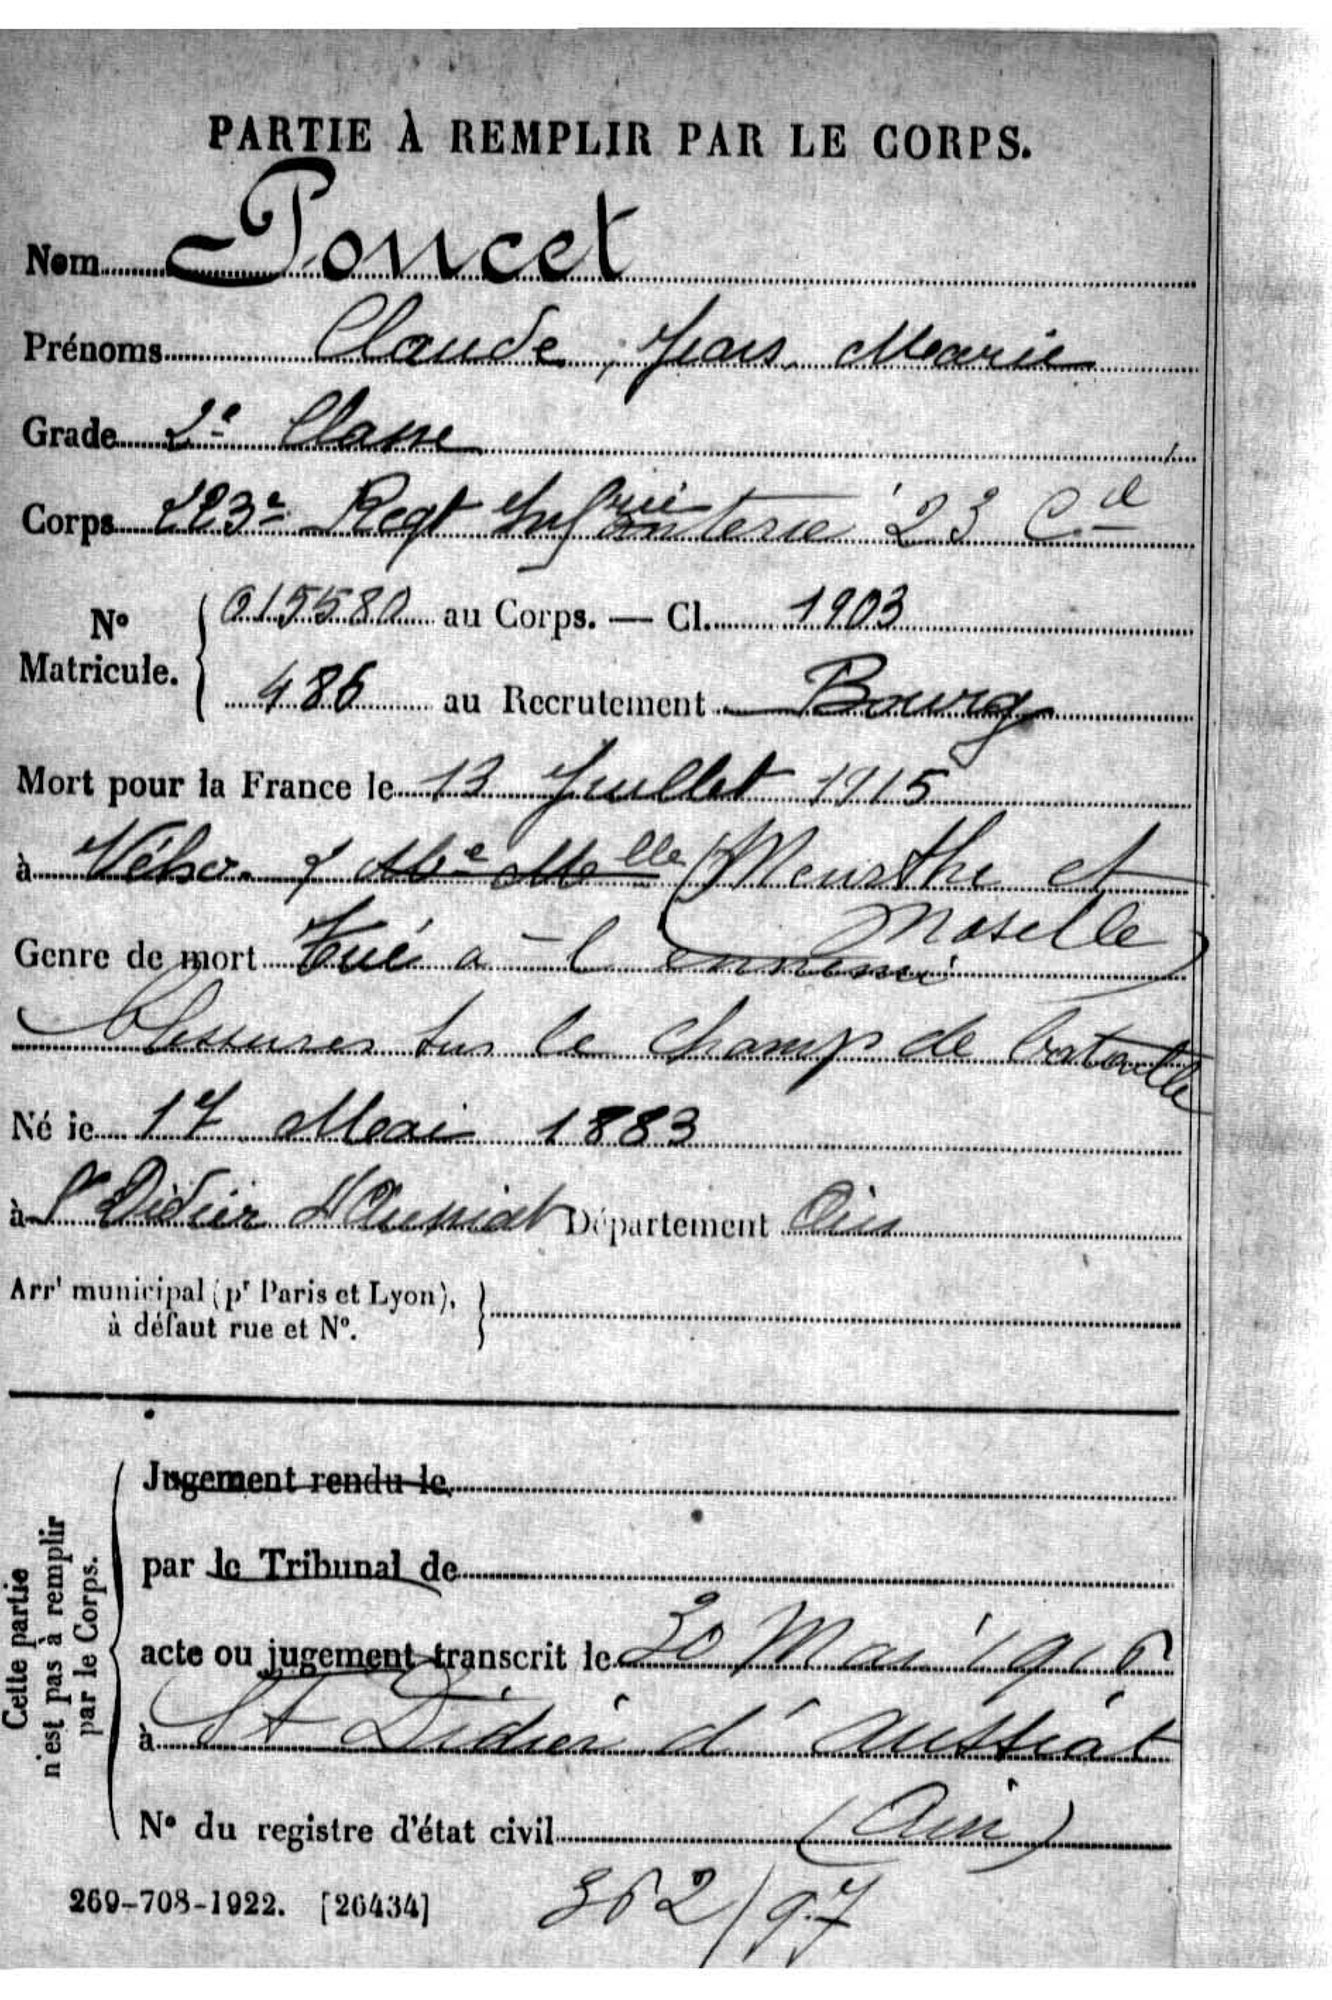 PARTIE À REMPLIR PAR LE CORPS.
Nom Poncet
Prénoms Claude, Jean, Marie
Grade 2e Classe
Corps 223e Regt Infanterie 23 Cie
No Matricule. 015580 au Corps. — Cl. 1903
486 au Recrutement Bourg
Mort pour la France le 13 Juillet 1915
à Vého Mhe Mlle (Meurthe et
Moselle)
Genre de mort Tué a l ennemi
Blessures sur le champ de bataille
Né le 17 Mai 1883
à St Didier d'Aussiat Département Ain
Arrt municipal (pr Paris et Lyon),
à défaut rue et No.
Cette partie
n'est pas à remplir
par le Corps.
Jugement rendu le
par le Tribunal de
acte ou jugement transcrit le 30 Mai 1916
à St Didier d'Aussiat
No du registre d'état civil (Ain)
269-708-1922. [26434]
362/97